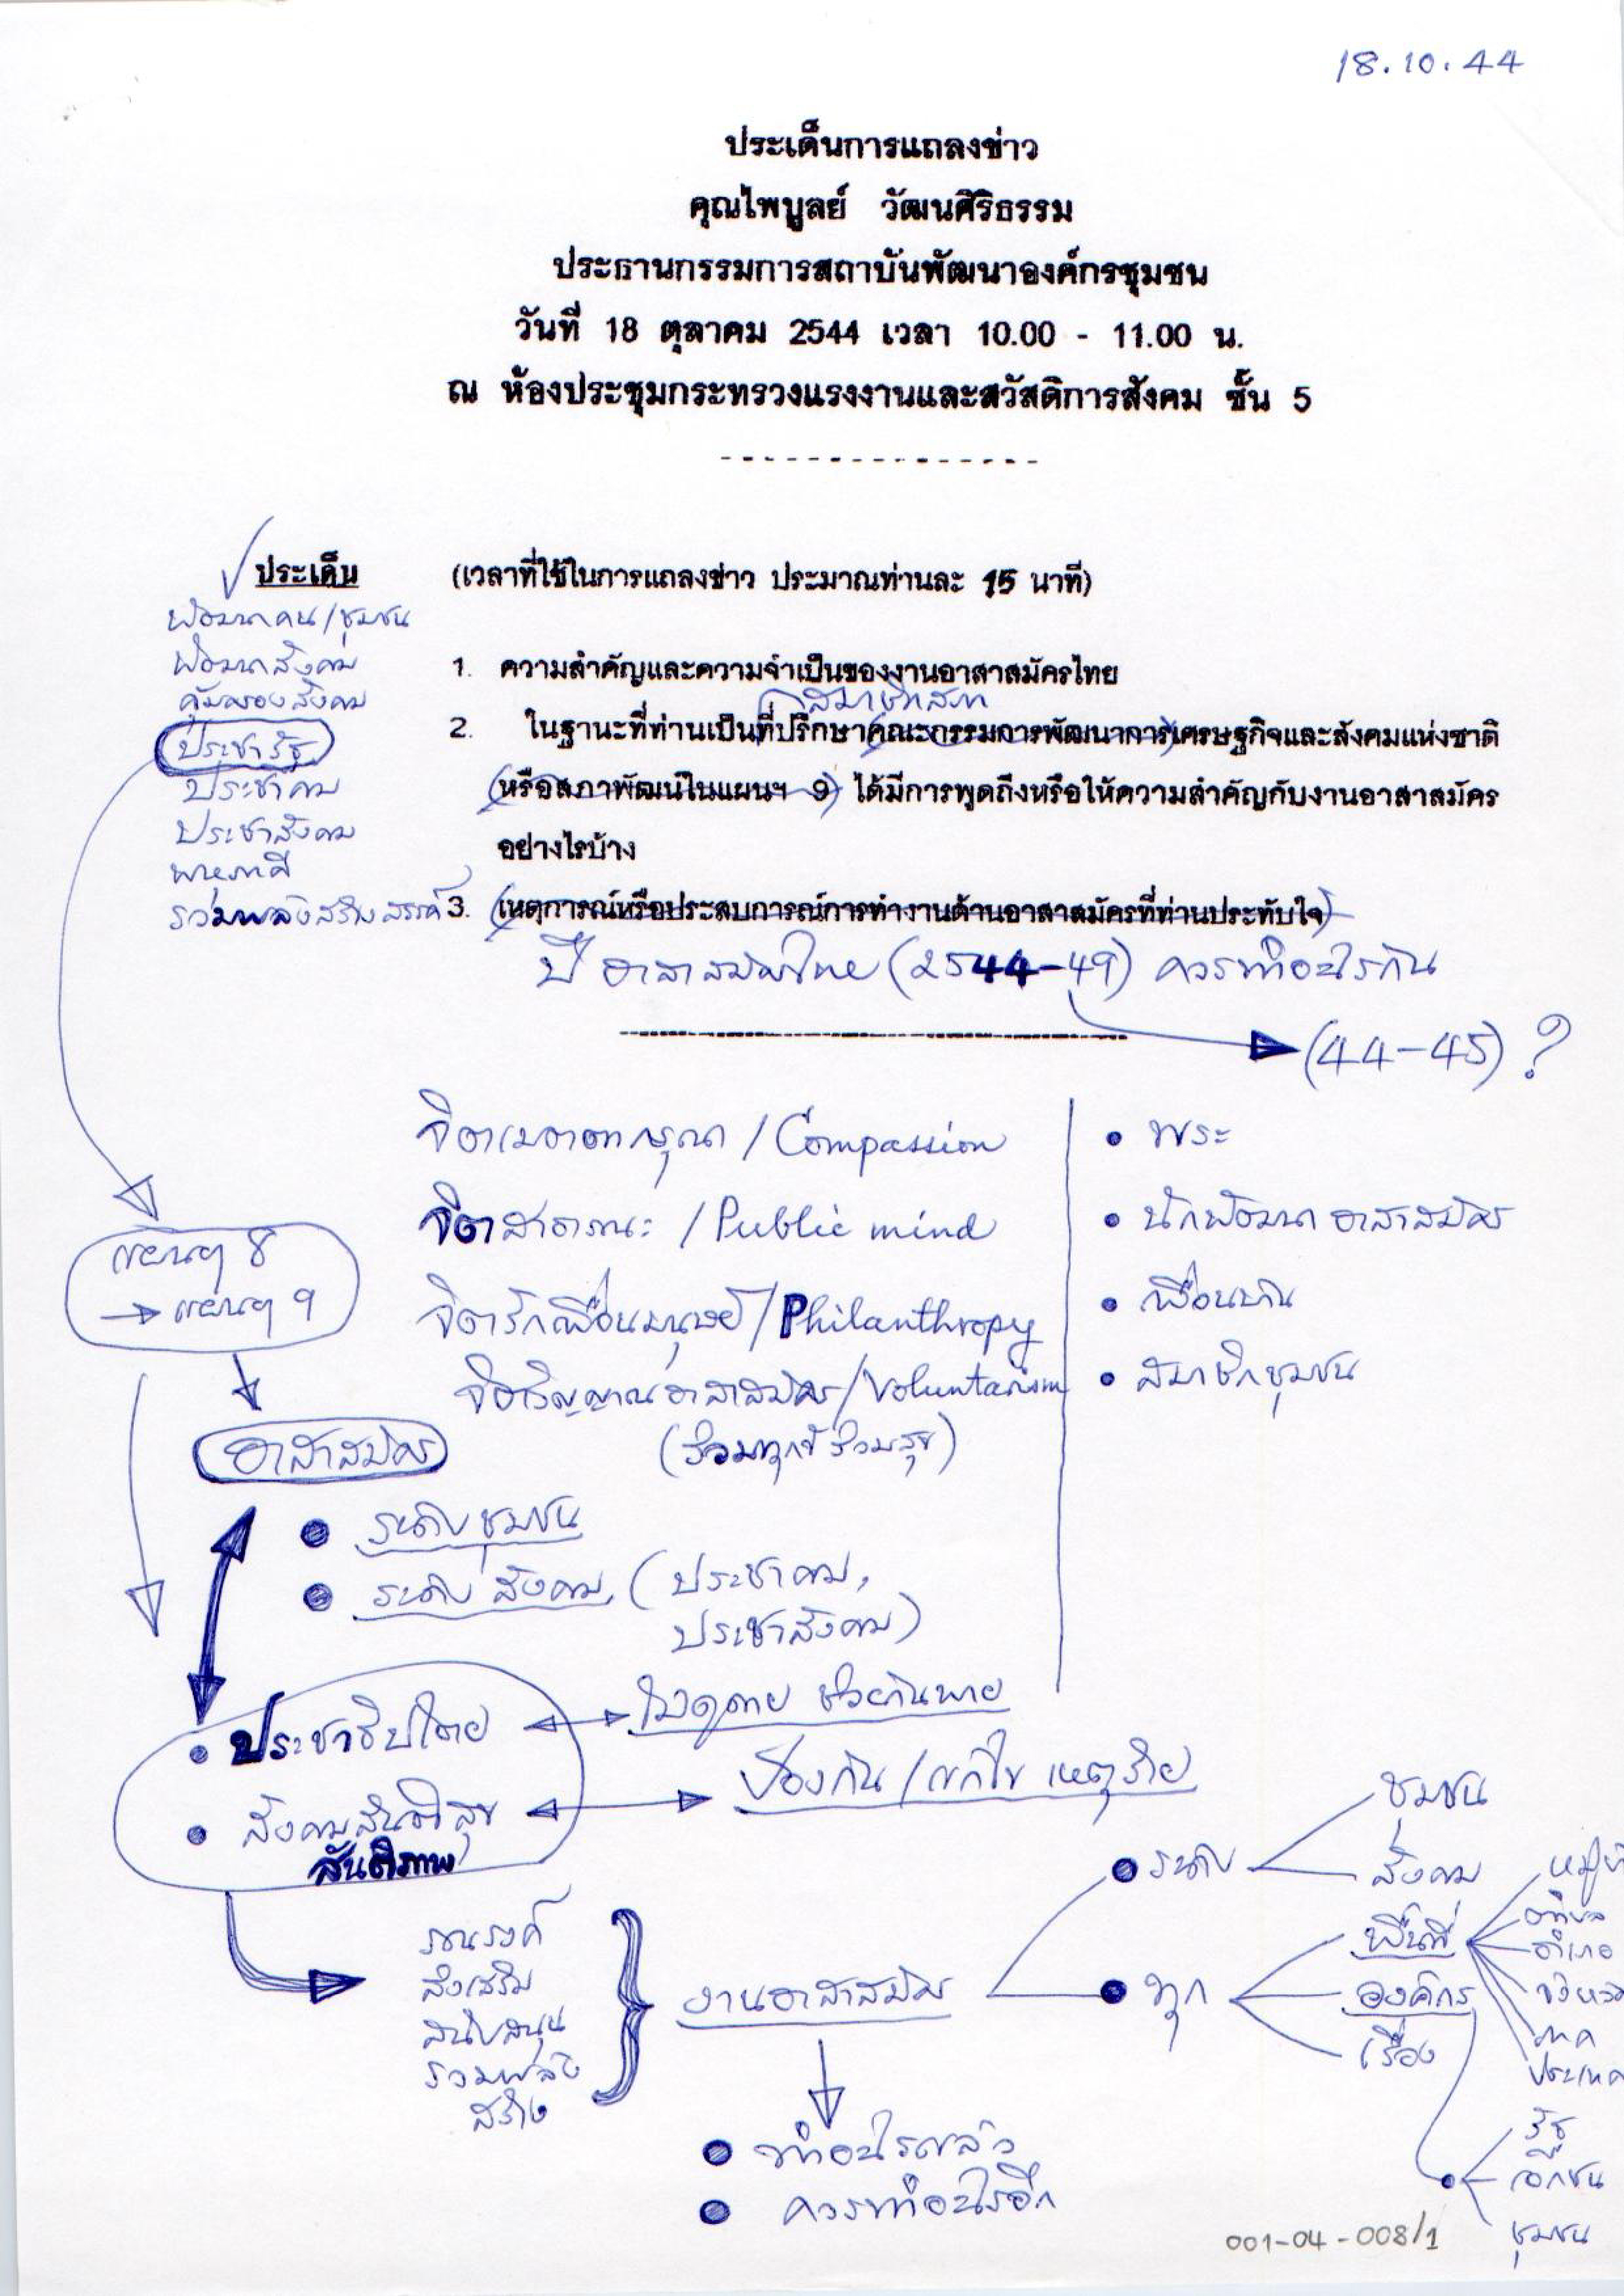 18.10.44
ประเด็นการแถลงข่าว
คุณไพบูลย์ วัฒนศิริธรรม
ประธานกรรมการสถาบันพัฒนาองค์กรชุมชน
วันที่ 18 ตุลาคม 2544 เวลา 10.00 - 11.00 น.
ณ ห้องประชุมกระทรวงแรงงานและสวัสดิการสังคม ชั้น 5
ประเด็น (เวลาที่ใช้ในการแถลงข่าว ประมาณท่านละ 15 นาที)
พัฒนาคน/ชุมชน
พัฒนาสังคม
คุ้มครองสังคม
ประชารัฐ
ประชาคม
ประชาสังคม
พหุภาคี
รวมพลังสร้างสรรค์
1. ความสำคัญและความจำเป็นของงานอาสาสมัครไทย
สมาชิกสภา
2. ในฐานะที่ท่านเป็นที่ปรึกษา(คณะกรรมการพัฒนาการ)เศรษฐกิจและสังคมแห่งชาติ
(หรือสภาพัฒน์ในแผนฯ 9) ได้มีการพูดถึงหรือให้ความสำคัญกับงานอาสาสมัคร
อย่างไรบ้าง
3. (เหตุการณ์หรือประสบการณ์การทำงานด้านอาสาสมัครที่ท่านประทับใจ)
ปีอาสาสมัครไทย (2544-49) ควรทำอะไรกัน
(44-45) ?
จิตเมตตากรุณา / Compassion
จิตสาธารณะ / Public mind
จิตรักเพื่อนมนุษย์ / Philanthropy
จิตวิญญาณอาสาสมัคร / Voluntarism
(ร่วมทุกข์ ร่วมสุข)
• พระ
• นักพัฒนา อาสาสมัคร
• เพื่อนบ้าน
• สมาชิกชุมชน
แผนฯ 8
→ แผนฯ 9
อาสาสมัคร
• ระดับชุมชน
• ระดับสังคม (ประชาคม,
ประชาสังคม)
• ประชาธิปไตย
ไม่ดูดาย ช่วยกันพาย
• สังคมสันติสุข
สันติภาพ
ป้องกัน / แก้ไข เหตุร้าย
รณรงค์
ส่งเสริม
สนับสนุน
รวมพลัง
สร้าง
งานอาสาสมัคร
• ระดับ
ชุมชน
สังคม
• ทุก
พื้นที่
องค์กร
เรื่อง
ตำบล
อำเภอ
จังหวัด
ภาค
ประเทศ
รัฐ
เอกชน
ชุมชน
• ทำอะไรแล้ว
• ควรทำอะไรอีก
001-04-008/1